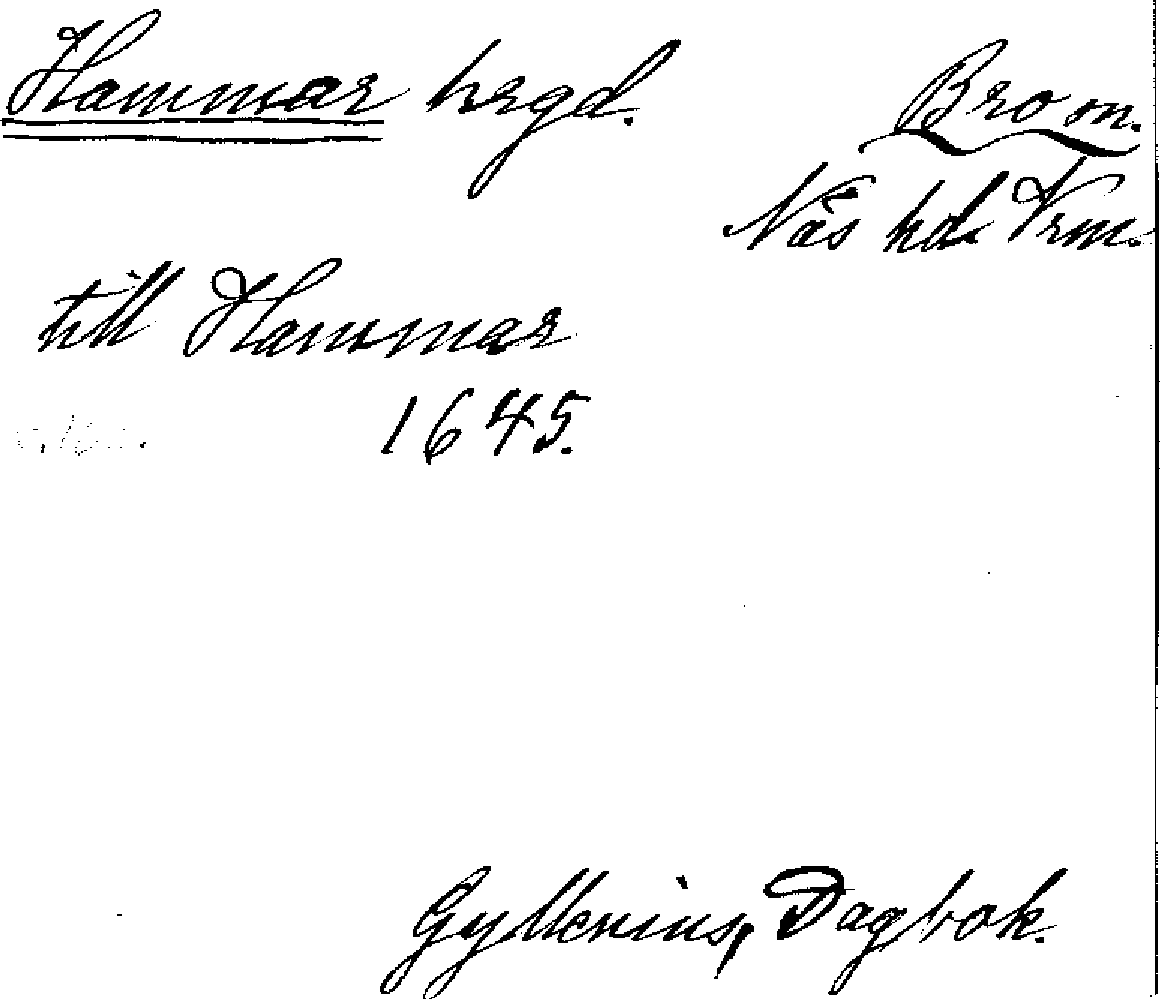 Hammar hrgd. Bro sn.
Näs hd. Vrm.
till Hammar
1645.
Gyllenius, Dagbok.